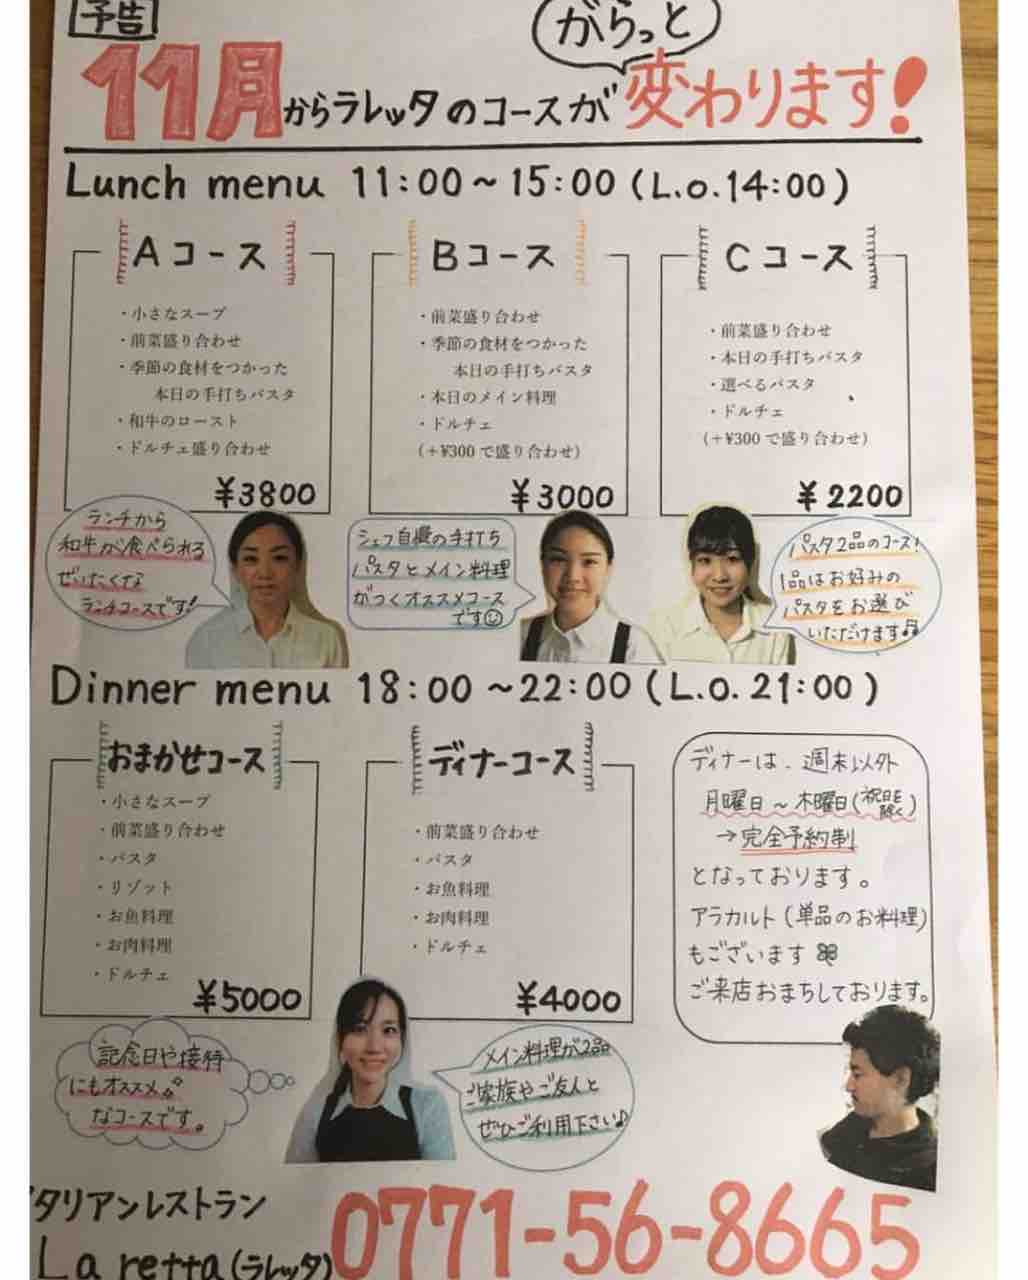 予告
がらっと
11月からラレッタのコースが変わります!
Lunch menu 11:00~15:00(L.o.14:00)
Aコース
・小さなスープ
・前菜盛り合わせ
・季節の食材をつかった
本日の手打ちパスタ
・和牛のロースト
・ドルチェ盛り合わせ
¥3800
Bコース
・前菜盛り合わせ
・季節の食材をつかった
本日の手打ちパスタ
・本日のメイン料理
・ドルチェ
(+¥300で盛り合わせ)
¥3000
Cコース
・前菜盛り合わせ
・本日の手打ちパスタ
・選べるパスタ
・ドルチェ
(+¥300で盛り合わせ)
¥2200
ランチから
和牛が食べられる
ぜいたくな
ランチコースです!
シェフ自慢の手打ち
パスタとメイン料理
がつくオススメコース
です☺
パスタ2品のコース!
1品はお好みの
パスタをお選び
いただけます♫
Dinner menu 18:00~22:00(L.o.21:00)
おまかせコース
・小さなスープ
・前菜盛り合わせ
・パスタ
・リゾット
・お魚料理
・お肉料理
・ドルチェ
¥5000
ディナーコース
・前菜盛り合わせ
・パスタ
・お魚料理
・お肉料理
・ドルチェ
¥4000
ディナーは、週末以外
月曜日~木曜日(祝日を除く)
→完全予約制
となっております。
アラカルト(単品のお料理)
もございます
ご来店おまちしております。
記念日や接待
にもオススメ♪
なコースです。
メイン料理が2品
ご家族やご友人と
ぜひご利用下さい♪
タリアンレストラン
La retta(ラレッタ)
0771-56-8665